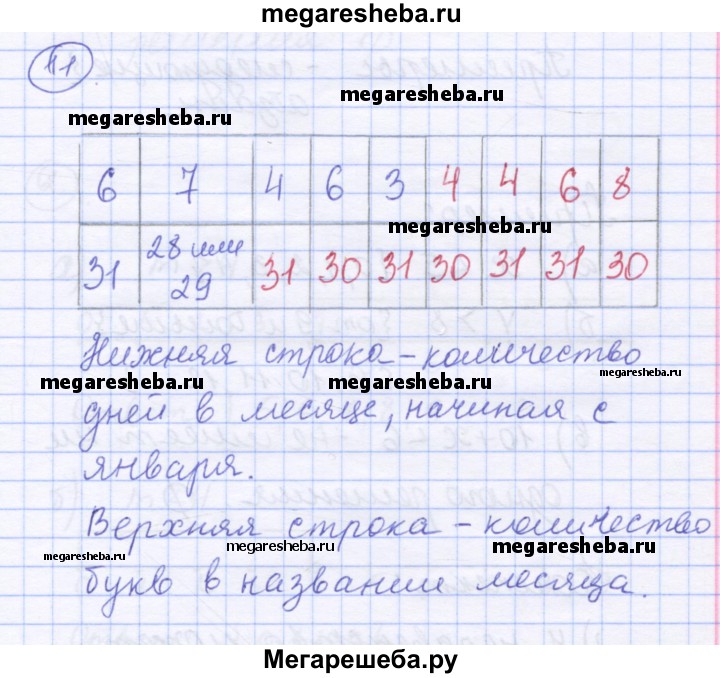 megaresheba.ru
11
megaresheba.ru
megaresheba.ru
6 7 4 6 3 4 4 6 8
megaresheba.ru
31 28 или 29 31 30 31 30 31 31 30
Нижняя строка – количество
megaresheba.ru megaresheba.ru megaresheba.ru
дней в месяце, начиная с
января.
Верхняя строка – количество
megaresheba.ru megaresheba.ru megaresheba.ru
букв в названии месяца.
Мегарешеба.ру